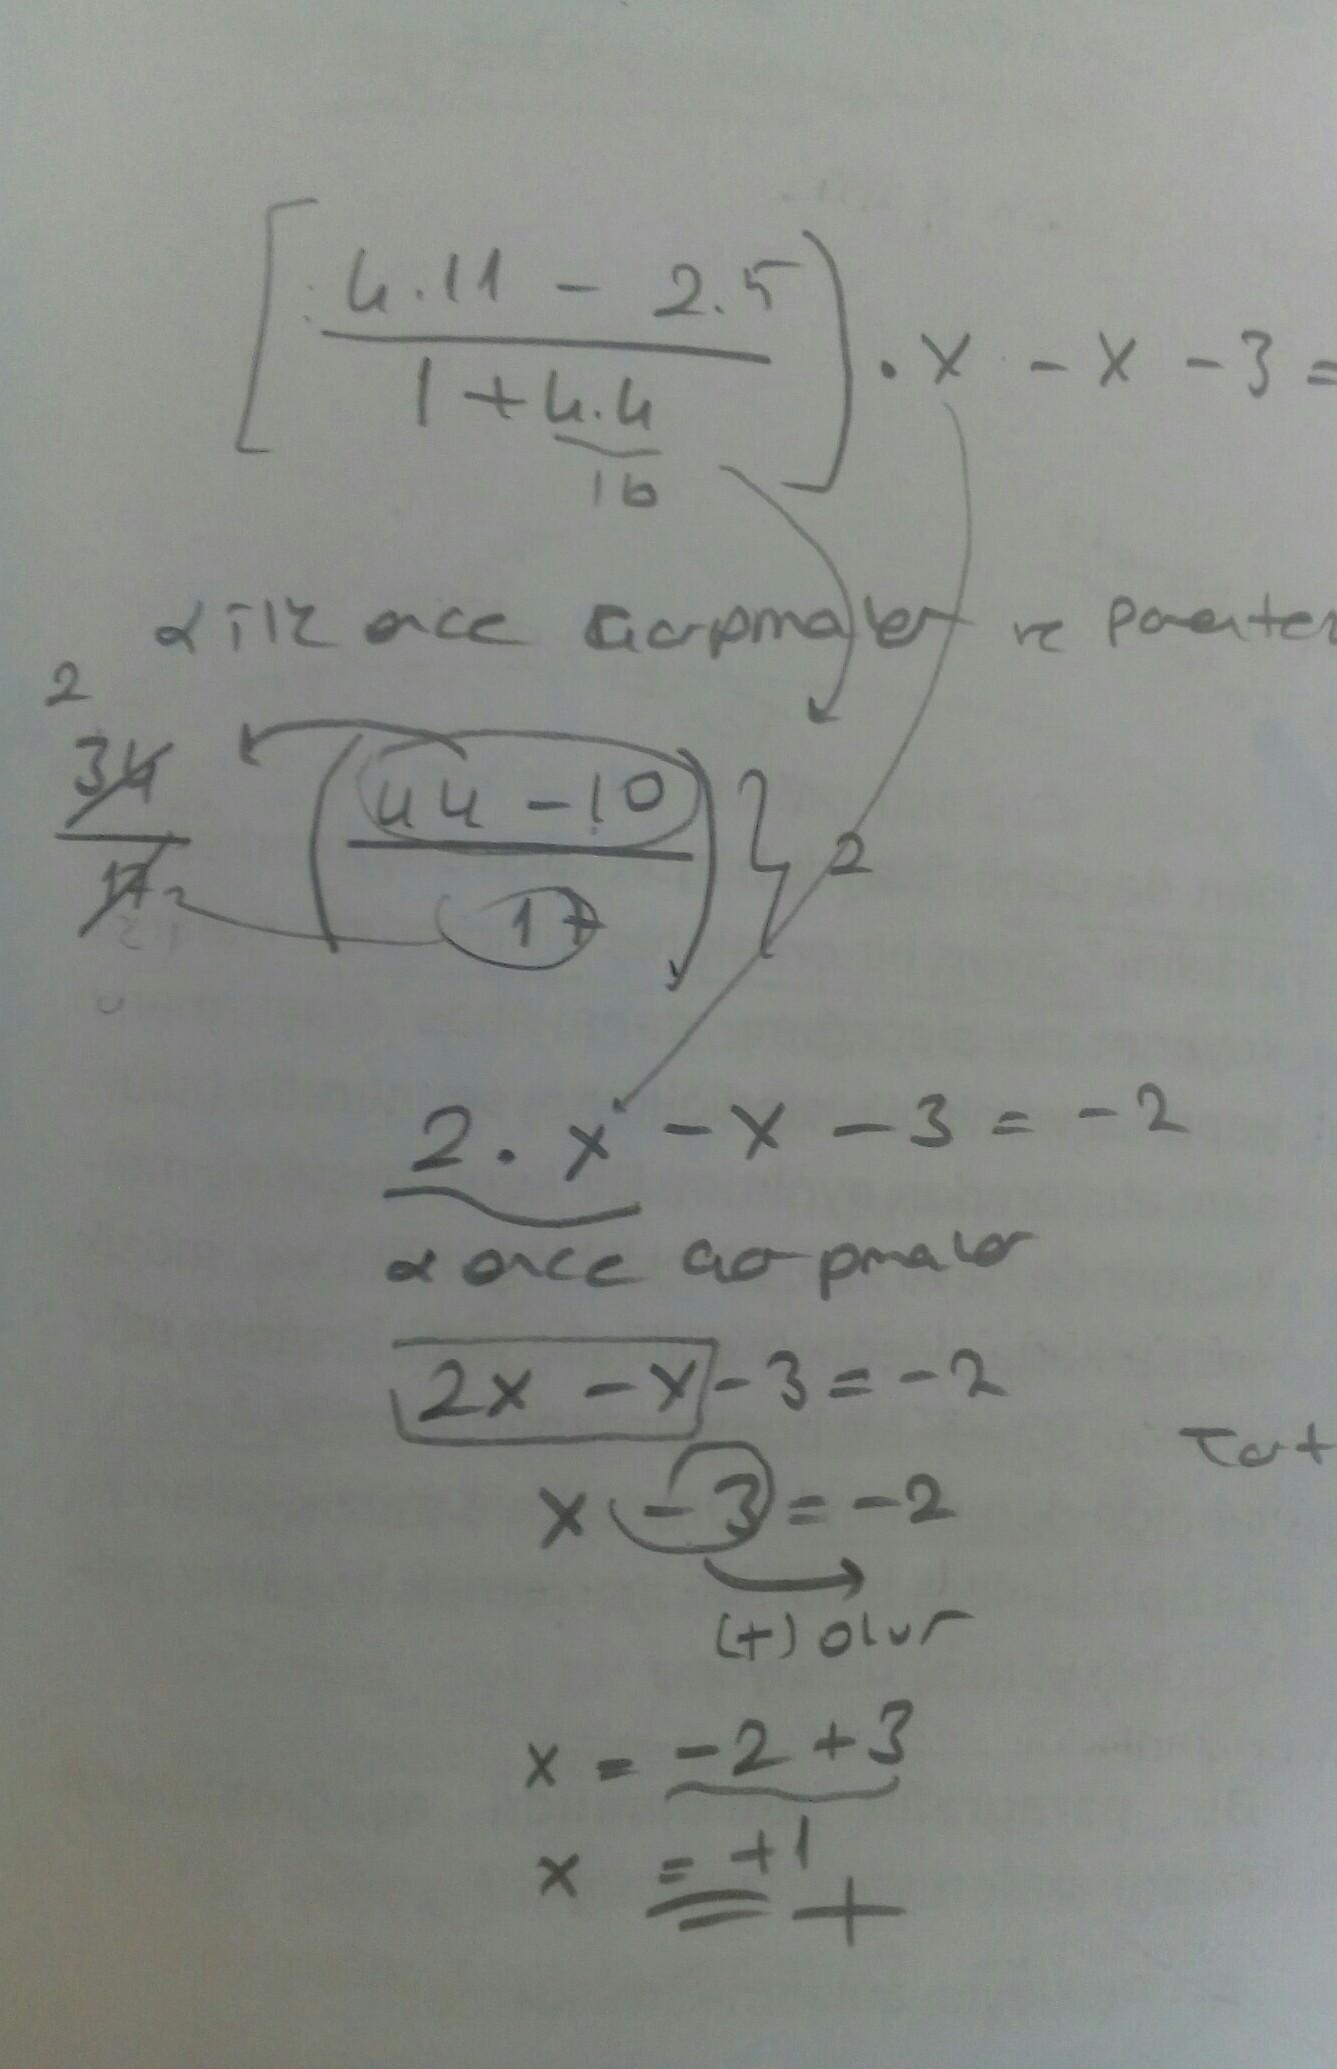 [ 4.11 - 2.5 / 1 + 4.4 ] . x - x - 3 =
16
İlk önce çarpmalar ve Parantez
2
34 / 17
( 44 - 10 / 17 ) } 2
2 . x - x - 3 = - 2
önce çarpmalar
2x - x - 3 = - 2
x - 3 = - 2
(+) olur
x = - 2 + 3
x = + 1